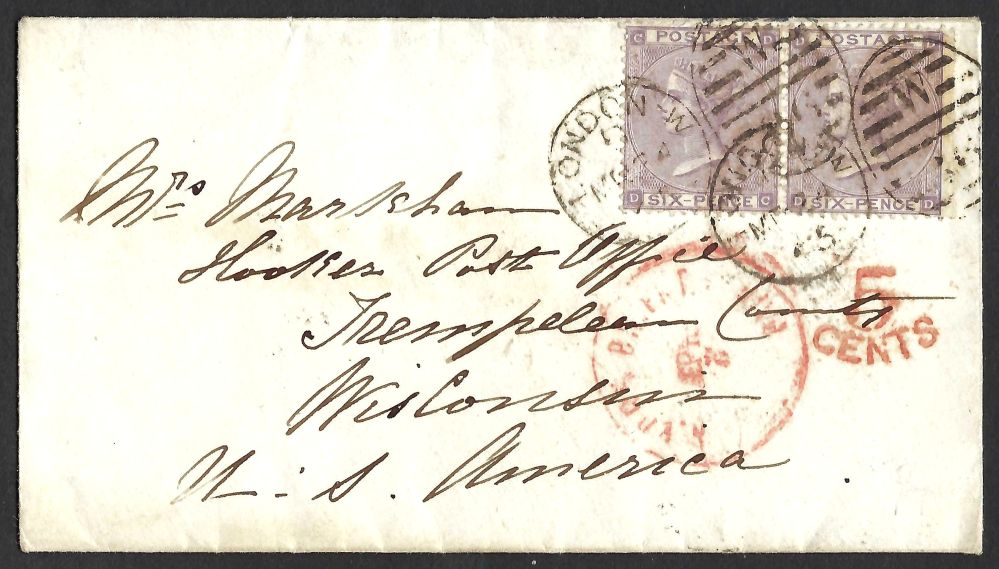 C POSTAGE D
D POSTAGE D
D SIX-PENCE C
D SIX-PENCE D
LONDON W
M
5
CENTS
Mrs Markham
Hooker Post Office
Trempeleau County
Wisconsin
U. S. America